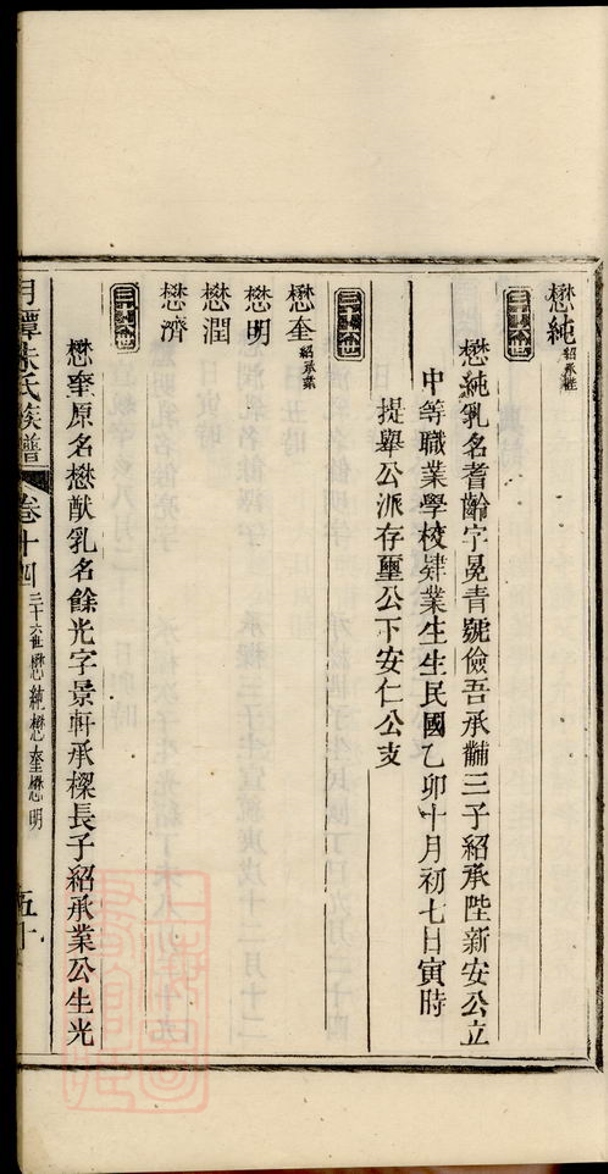 懋純 紹承陛
三十六世
懋純乳名耆齡字冕青號儉吾承黼三子紹承陛新安公立
中等職業學校肄業生生民國乙卯十月初七日寅時
提舉公派存璽公下安仁公支
三十六世
懋奎 紹承業
懋明
懋潤
懋濟
三十六世
懋奎原名懋猷乳名餘光字景軒承樑長子紹承業公生光
月潭朱氏族譜 卷十四 三十六世懋純懋奎懋明 五十